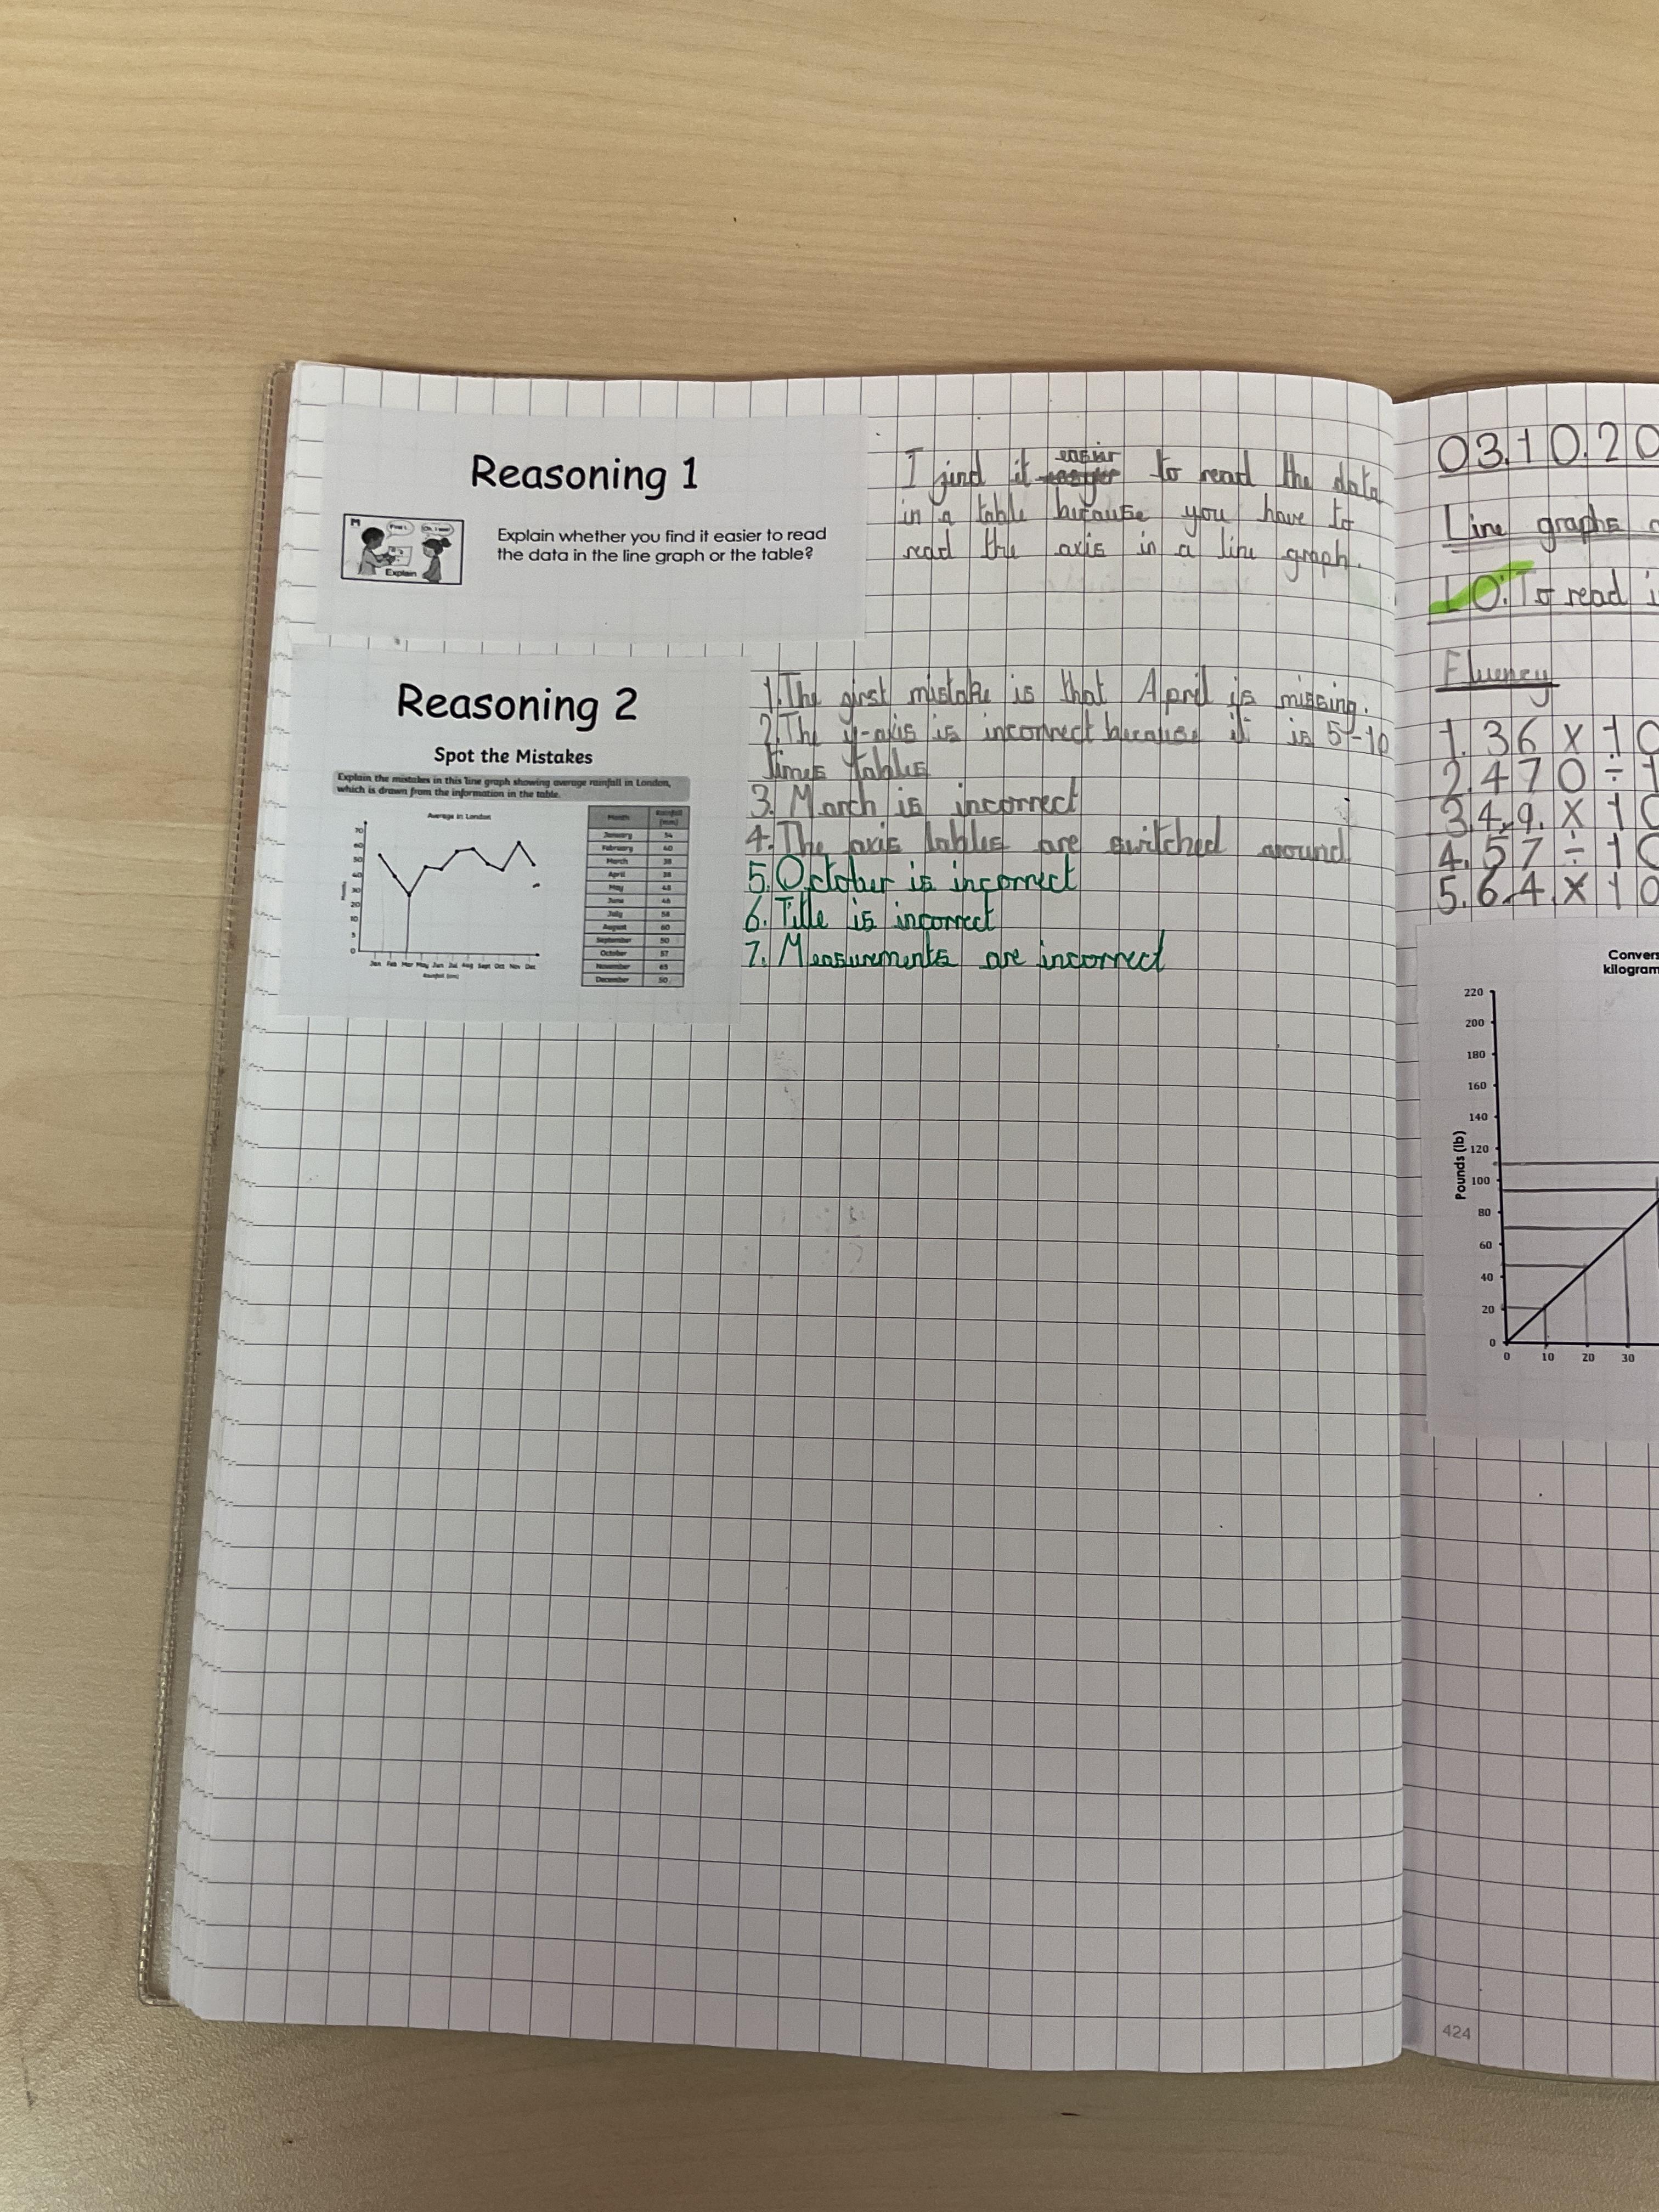 Reasoning 1
M
Explain
Explain whether you find it easier to read
the data in the line graph or the table?
I find it easier to read the data
in a table because you have to
read the axis in a line graph.
Reasoning 2
Spot the Mistakes
Explain the mistakes in this line graph showing average rainfall in London,
which is drawn from the information in the table.
Average in London
70
60
50
40
30
20
10
5
0
Months
Jan Feb Mar May Jun Jul Aug Sept Oct Nov Dec
Rainfall (cm)
Month Rainfall (mm)
January 54
February 40
March 38
April 38
May 48
June 46
July 58
August 60
September 50
October 57
November 65
December 50
1. The first mistake is that April is missing.
2. The y-axis is incorrect because it is 5-10
times tables
3. March is incorrect
4. The axis lables are switched around
5. October is incorrect
6. Title is incorrect
7. Measurements are incorrect
03.10.20
Line graphs
LO: To read
Fluency
1. 36 x 10
2. 470 ÷ 1
3. 4.9. x 10
4. 57 ÷ 10
5. 6.4. x 10
Convers
kilogram
Pounds (lb)
220
200
180
160
140
120
100
80
60
40
20
0
0 10 20 30
424